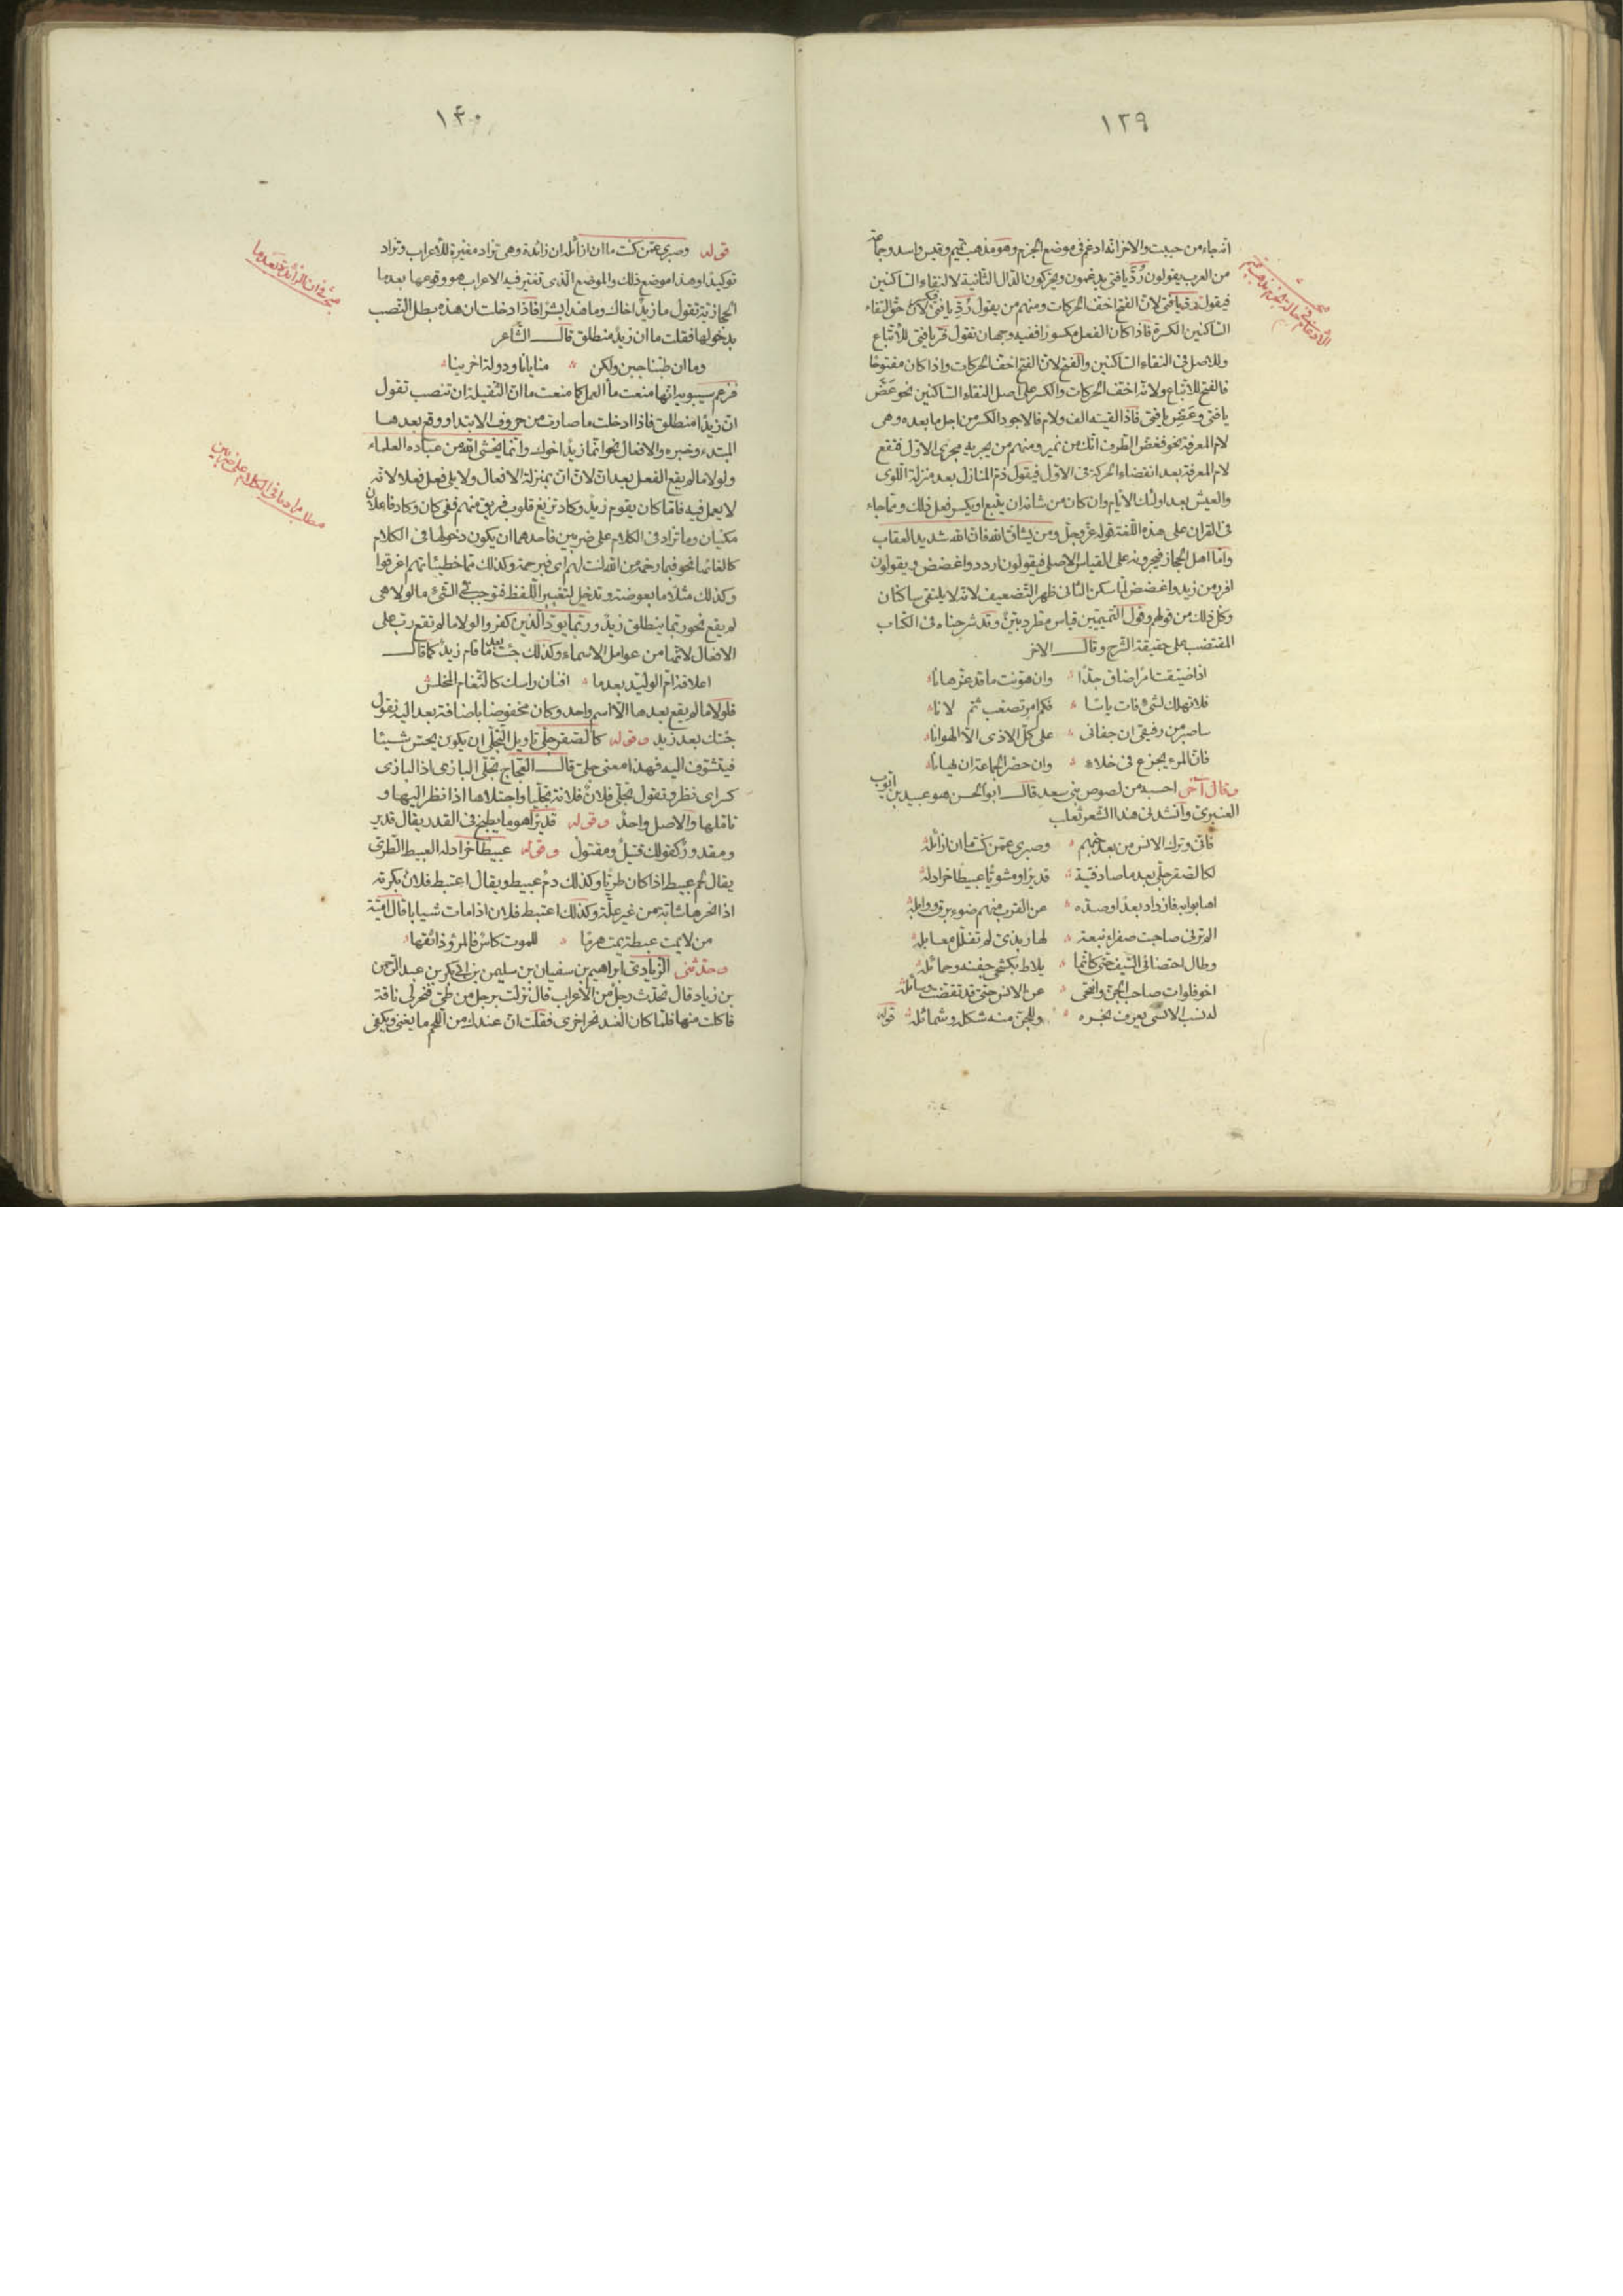 ١٣٩
انه جاء من حببت والاخر انه ادغم في موضع الجزم وهو مذهب تميم وقيس واسد وجماعة
من العرب يقولون رُدَّ يا فتى يدغمون ويحركون الدال الثانية لالتقاء الساكنين
فيقول رد يا فتى لان الفتح اخف الحركات ومنهم من يقول رُدِّ يا فتى لان حق التقاء
الساكنين الكسرة فاذا كان الفعل مكسورا ففيه وجهان تقول فر يا فتى للاتباع
وللاصل في التقاء الساكنين والفتح لان الفتح اخف الحركات واذا كان مفتوحا
فالفتح للاتباع ولانه اخف الحركات والكسر على اصل التقاء الساكنين نحو عَضَّ
يا فتى وعَضِّ يا فتى فاذا لقيته الف ولام فالاجود الكسر من اجل ما بعده وهى
لام المعرفة نحو فغض الطرف انك من نمير ومنهم من يجريه مجرى الاول فتقع
لام المعرفة بعد انقضاء الحركة في الاول فيقول ذم المنازل بعد منزلة اللوى
والعيش بعد اولئك الايام وان كان من شانه ان يتبع او يكسر فعل ذلك ومما جاء
في القران على هذه اللغة قوله عز وجل ومن يشاق الله فان الله شديد العقاب
واما اهل الحجاز فيجرونه على القياس الاصلى فيقولون اردد واغضض ويقولون
افرر من زيد واغضض لما سكن الثانى ظهر التضعيف لانه لا يلتقى ساكنان
وكل ذلك من قولهم وقول التميميين قياس مطرد بيّنٌ وقد شرحناه في الكتاب
المقتضب على حقيقة الشرح وقال الاخر
اذا ضيقت امرا ضاق جدّا وان هونت ما قد عز هانا
فلا تهلك لشئ فات ياسا فكم امر تصعب ثم لانا
ساصبر من رفيقى ان جفانى على كل الاذى الا الهوانا
فان المرء يجزع في خلاء وان حضر الجماعة ان يهانا
وقال آخر احسبه من لصوص بنى سعد قال ابو الحسن هو عبيد بن ايوب
العنبرى وانشدنى هذا الشعر ثعلب
فانى وترك الانس من بعد حبهم وصبرى عمن كنت ما ان ازائله
لكالصقر جلّى بعد ما صاد فتية قديرا ومشويّا عبيطا خرادله
اهابوا به فازداد بعدا وصده عن القرب منهم ضوء برق ووابله
الم ترنى صاحبت صفراء نبعة لها ربذى لم تفلل معابله
وطال احتضانى السيف حتى كانما يلاط بكشحى جفنه وحمائله
اخو فلوات صاحب الجن وانتحى عن الانس حتى قد تقضت وسائله
له نسب الانسى يعرف نجره وللجن منه شكله وشمائله قوله
١٤٠
قوله وصبرى عمن كنت ما ان ازائله ان زائدة وهى تزاد مغيرة للاعراب وتزاد
توكيدا وهذا موضع ذلك والموضع الذى تغير فيه الاعراب هو وقوعها بعد ما
الحجازية تقول ما زيدٌ اخاك وما هذا بشرا فاذا ادخلت ان هذه بطل النصب
بدخولها فقلت ما ان زيدٌ منطلق قال الشاعر
وما ان طبنا جبن ولكن منايانا ودولة اخرينا
فزعم سيبويه انها منعت ما العمل كما منعت ما ان الثقيلة ان تنصب تقول
ان زيدًا منطلق فاذا ادخلت ما صارت من حروف الابتدا ووقع بعدها
المبتدء وخبره والافعال نحو انما زيدٌ اخوك وانما يخشى الله من عباده العلماء
ولولا ما لم يقع الفعل بعد ان لان ان بمنزلة الافعال ولا يلى فعل فعلا لانه
لا يعمل فيه فاما كان يقوم زيدٌ وكاد تزيغ قلوب فريق منهم ففى كان وكاد فاعلان
مكنيان وما تزاد في الكلام على ضربين فاحدهما ان يكون دخولها في الكلام
كالغائها نحو فبما رحمة من الله لنت لهم اى فبرحمة وكذلك مما خطيئاتهم اغرقوا
وكذلك مثلا ما بعوضة وتدخل لتغيير اللفظ فتوجب في الشئ ما لولا هى
لم يقع نحو ربما ينطلق زيدٌ وربما يود الذين كفروا لولا ما لم تقع رب على
الافعال لانها من عوامل الاسماء وكذلك جئت بعد ما قام زيدٌ كما قال
اعلاقة ام الوليّد بعد ما افنان راسك كالثغام المخلس
فلولا ما لم يقع بعدها الا اسم واحد وكان مخفوضا باضافة بعد اليه تقول
جئتك بعد زيد وقوله كالصقر جلّى تاويل التجلّى ان يكون يحس شيئا
فيتشوف اليه فهذا معنى جلى قال العجاج تجلّى البازى اذا البازى
كسر اى نظر وتقول تجلّى فلانٌ فلانة تجلّيا واجتلاها اذا نظر اليها و
تاملها والاصل واحدٌ وقوله قديرًا هو ما يطبخ في القدر يقال قدير
ومقدورٌ كقولك قتيلٌ ومقتولٌ وقوله عبيطا خرادله العبيط الطرى
يقال لحم عبيط اذا كان طريّا وكذلك دمٌ عبيط ويقال اعتبط فلانٌ بكرته
اذا نحرها شابة من غير علّة وكذلك اعتبط فلان اذا مات شابا قال امية
من لا يمت عبطة يمت هرما للموت كاسٌ فالمرؤ ذائقها
وحدثنى الزيادى ابراهيم بن سفيان بن سليمن بن ابى بكر بن عبد الرحمن
بن زياد قال تحدث رجلٌ من الاعراب قال نزلت برجل من طى فنحر لى ناقة
فاكلت منها فلما كان الغد نحر اخرى فقلت ان عندك من اللحم ما يغنى ويكفى
مبحث في ان الزائدة بعد ما
مطلب زيادة ما في الكلام على ضربين